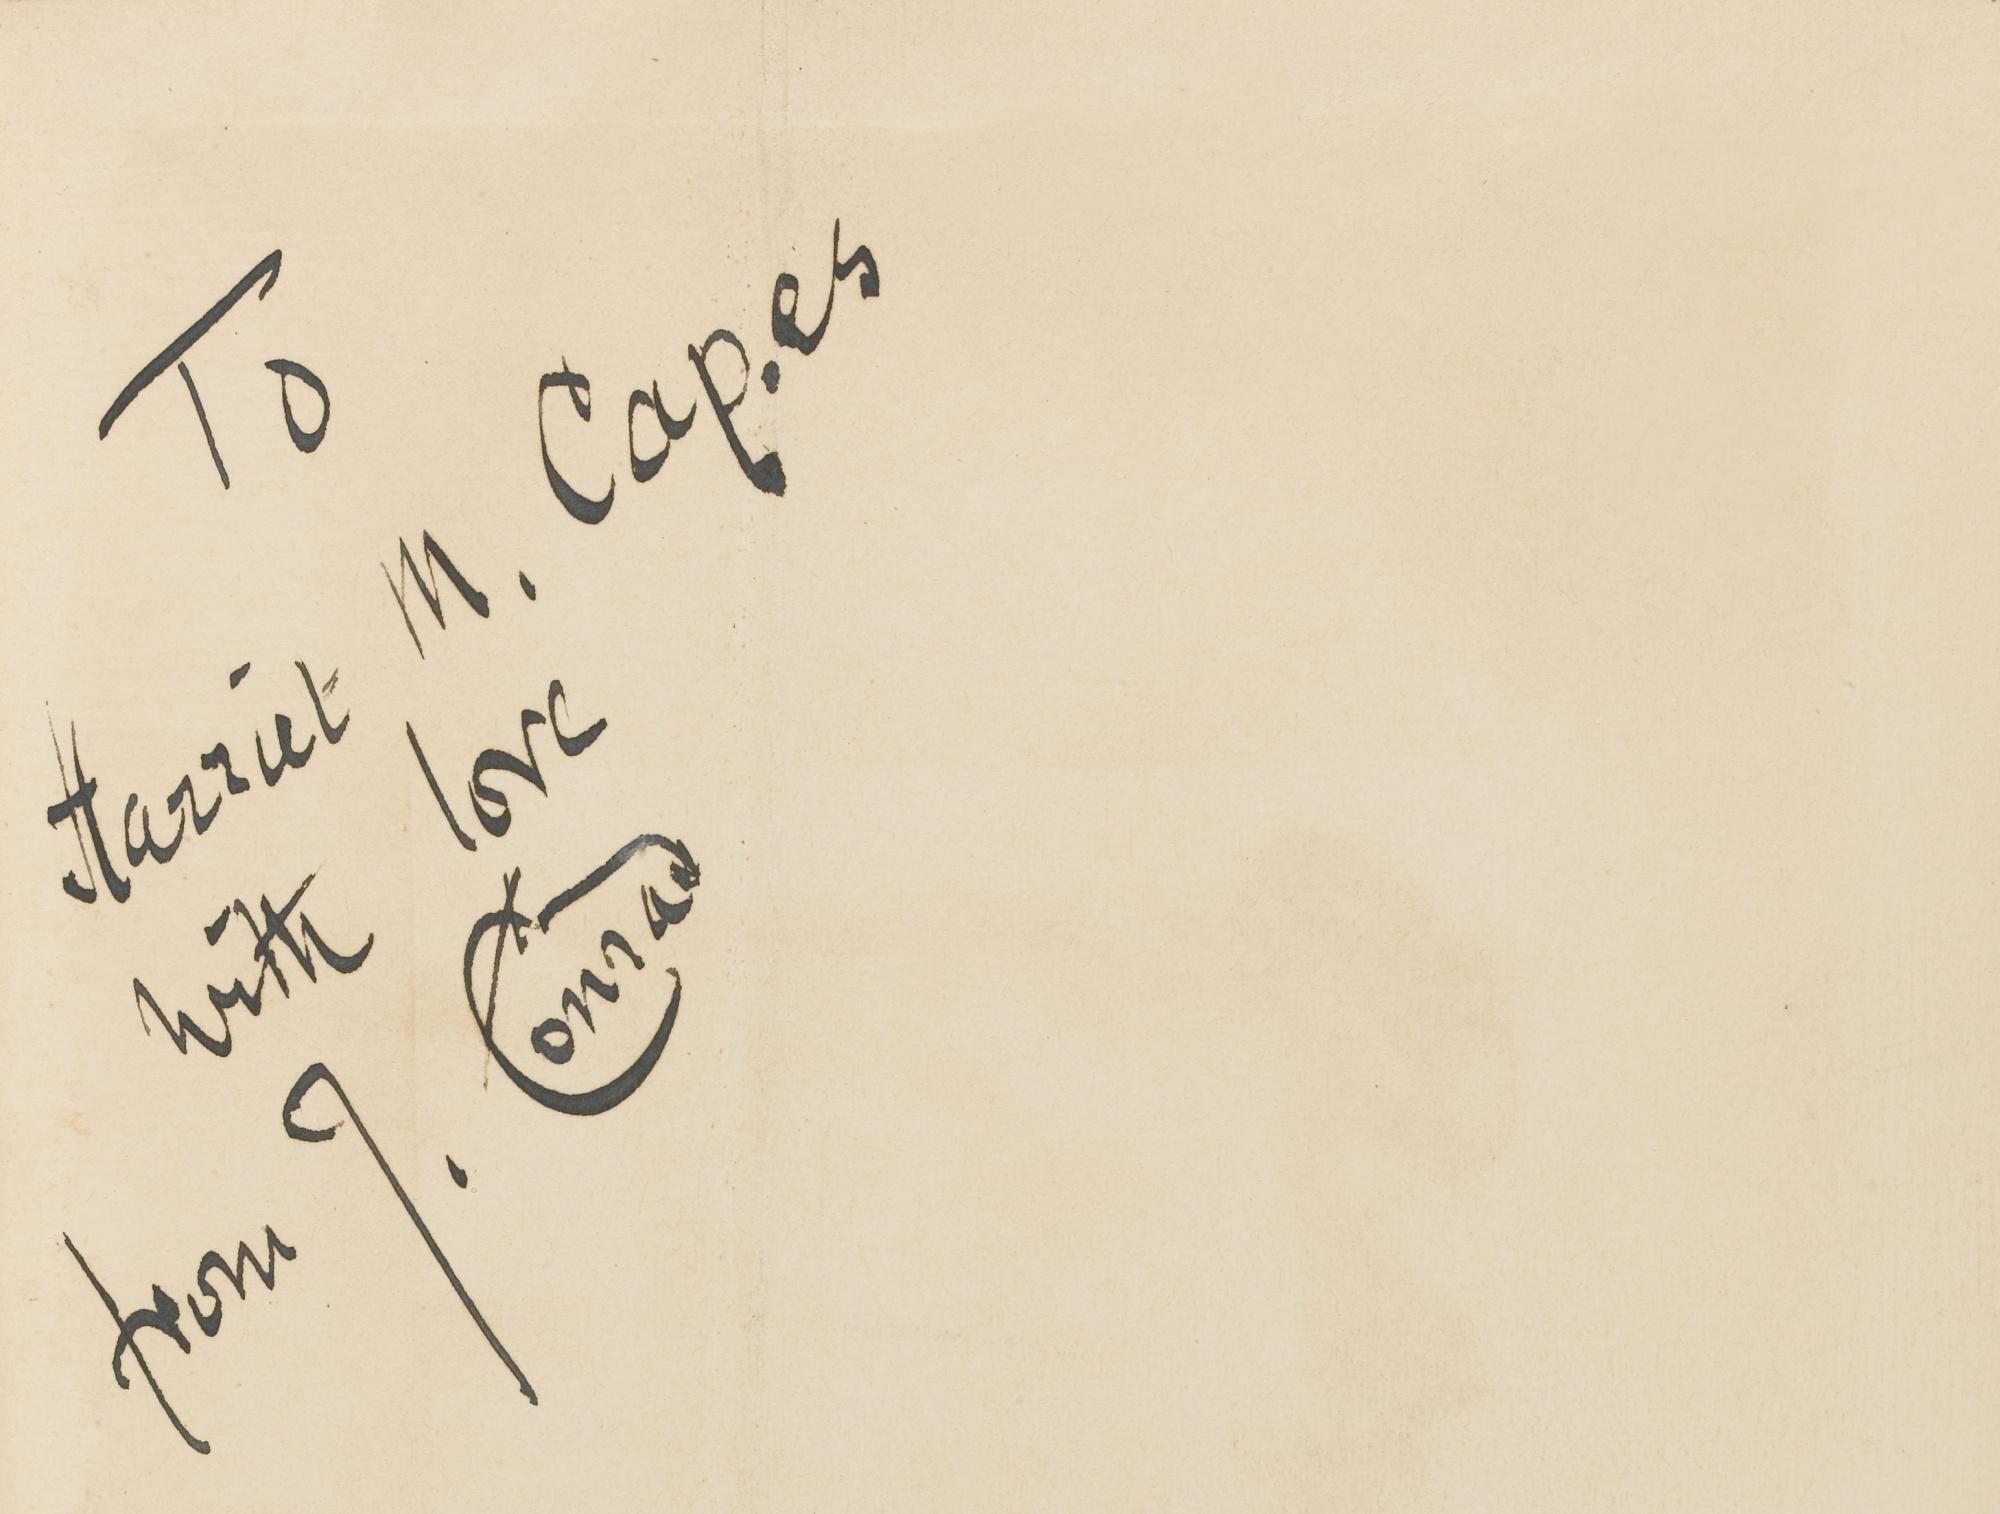 To
Harriet M. Capes
with love
from J. Conrad